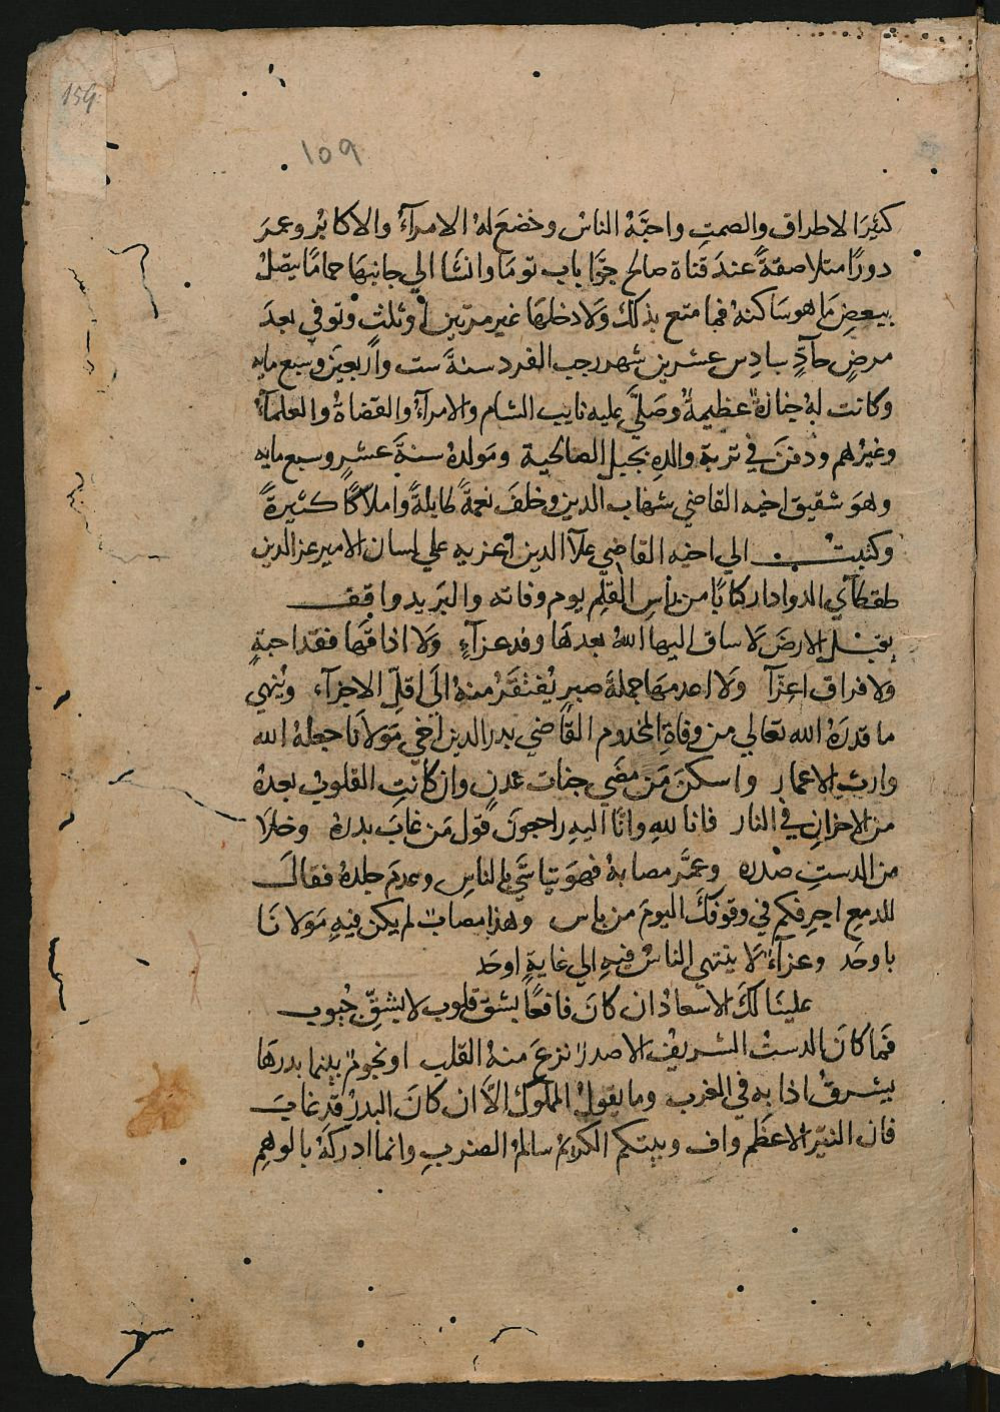 159
١٥٩
كثيرَ الاطراق والصمتِ واحبَّهُ الناسُ وخضعَ لهُ الامرآءُ والاكابرُ وعمرَ
دورًا متلاصقةً عندَ قناة صالح جوّا باب توما وانشا الي جانبها حمامًا يتّصلُ
ببعضِ ما هو ساكنهُ فما متع بذلك ولا دخلها غير مرتين او ثلث وتوفي بعدَ
مرضٍ حآدٍّ سادس عشرين شهر رجب الفرد سنةَ ست واربعينَ وسبع مايه
وكانت لهُ جنازة عظيمةٌ وصلَّي عليه نايب الشام والامرآءُ والقضاةُ والعلمآءُ
وغيرُهم ودُفنَ في تربة والدهِ بجبل الصالحية ومَولدهُ سنةَ عشرٍ وسبع مايه
وهوَ شقيق اخيه القاضي شهاب الدين وخلفَ نعمةً طايلةً واملاكًا كثيرةً
وكتبتُ الي اخيه القاضي علآ الدين اعزيه علي لسان الامير عز الدين
طقطاي الدوادار كتابًا من راسِ القلم يوم وفاته والبريد واقف
يقبل الارض لا ساق اليها اللهُ بعدها وفدعزآءٍ ولا اذاقَها فقد احبةٍ
ولا فراق اعزّآ ولا اعدمها جملةَ صبرٍ يُفتقرُ منهُ الَي اقلّ الاجزآء ويُنهي
ما قدرهُ الله تعالي من وفاةِ المخدوم القاضي بدر الدين اخي مَولانا جعلهُ الله
وارث الاعمار واسكنَ مَن مضَي جنات عدنٍ وان كانتِ القلوبُ بعدهُ
من الاحزانِ في النار فانا للهِ وانّا اليهِ راجعونَ قول مَن غابَ بدرهُ وخلا
من الدستِ صدره وعمَّ مصابهُ فهوَ يتاسَّي بالناسِ وعدم جلدهُ فقالَ
للدمعِ اجرِ فكم في وقوفكَ اليومَ من باس وهذا مصابٌ لم يكن فيهِ مَولانا
باوحد وعزآءٌ لا ينتهي الناسُ فيهِ الي غايةٍ اوحَد
علينا لكَ الاسعادُ ان كانَ نافعًا بشقّ قلوب لا بشقِّ جُيوب
فما كانَ الدستُ الشريفُ الا صدرًا نزعَ منهُ القلب او نجومٌ بينما بدرها
يشرقُ اذا به في المغرب وما يقولُ المملوكُ الاّ ان كانَ البدرُ قد غابَ
فان النيّر الاعظم واف وبيتكم الكريمُ سالمُ الضربِ وانما ادركهُ بالوهمِ